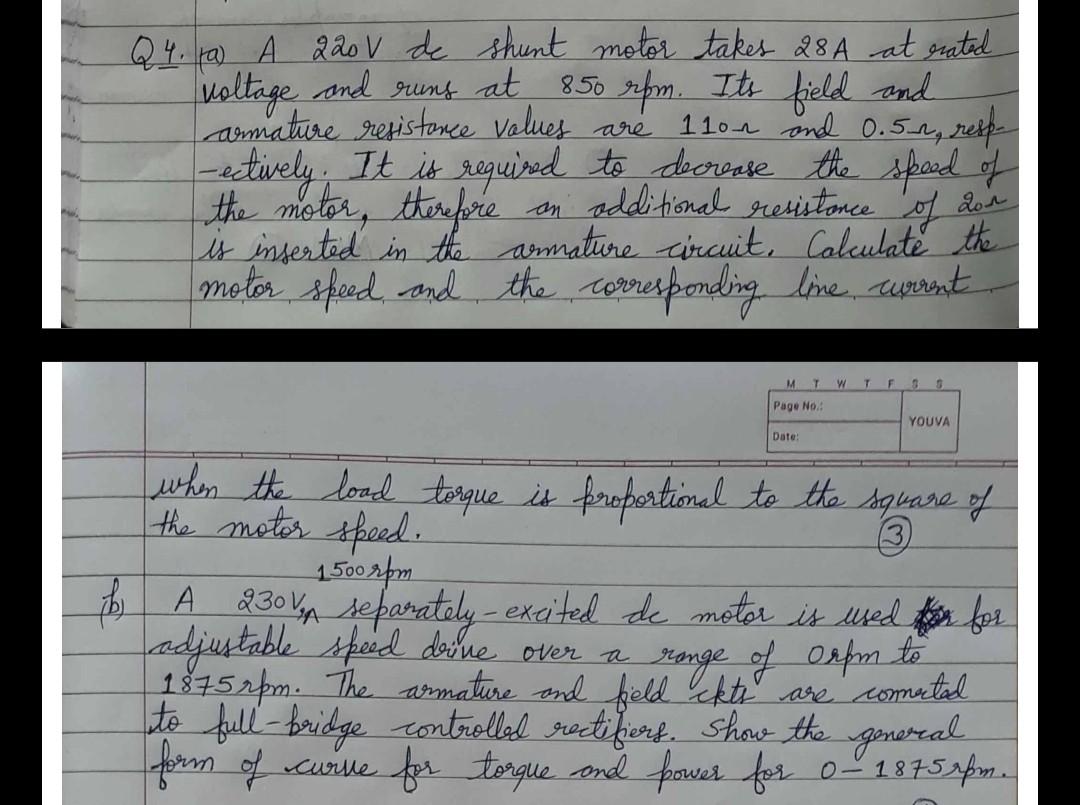 Q4. (a) A 220V dc shunt motor takes 28A at rated
voltage and runs at 850 rpm. Its field and
armature resistance values are 110Ω and 0.5Ω, resp-
-ectively. It is required to decrease the speed of
the motor, therefore an additional resistance of 20Ω
is inserted in the armature circuit. Calculate the
motor speed and the corresponding line current
M T W T F S S
Page No.:
YOUVA
Date:
when the load torque is proportional to the square of
the motor speed.
3
1500rpm
(b) A 230V, separately-excited dc motor is used for
adjustable speed drive over a range of 0rpm to
1875rpm. The armature and field ckts are connected
to full-bridge controlled rectifiers. Show the general
form of curve for torque and power for 0-1875rpm.